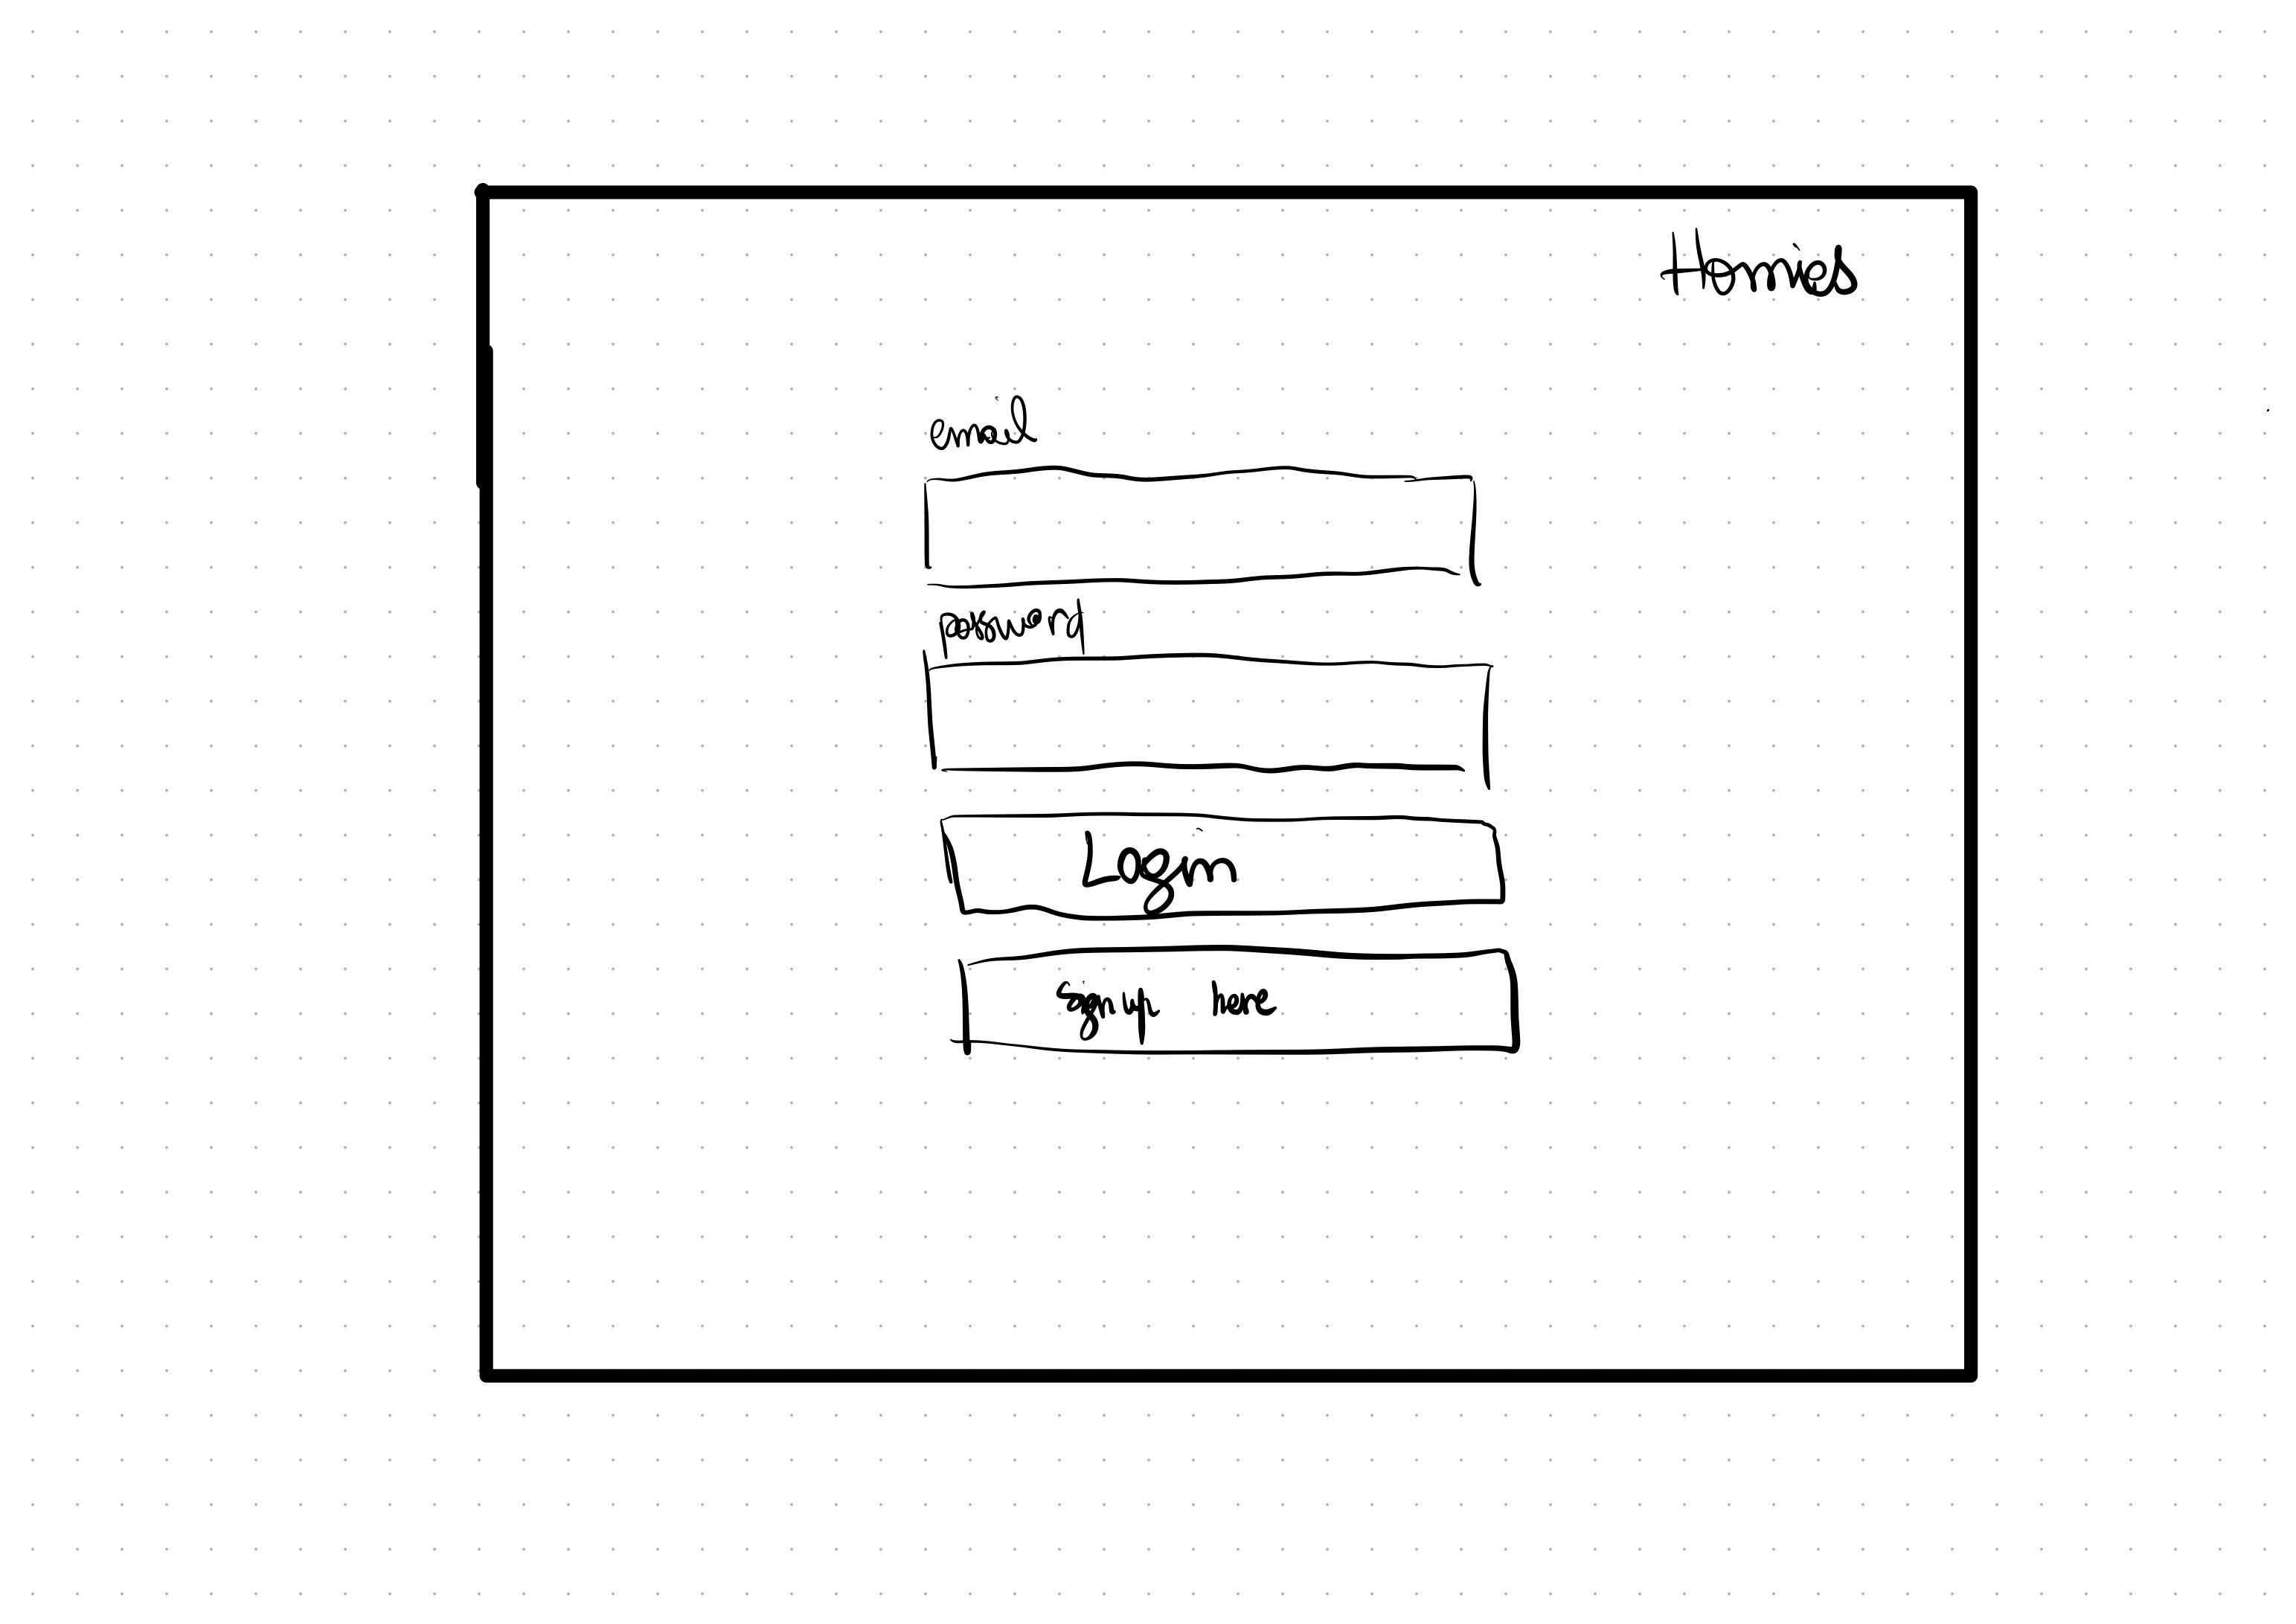 Homies
email
password
Login
sign up here